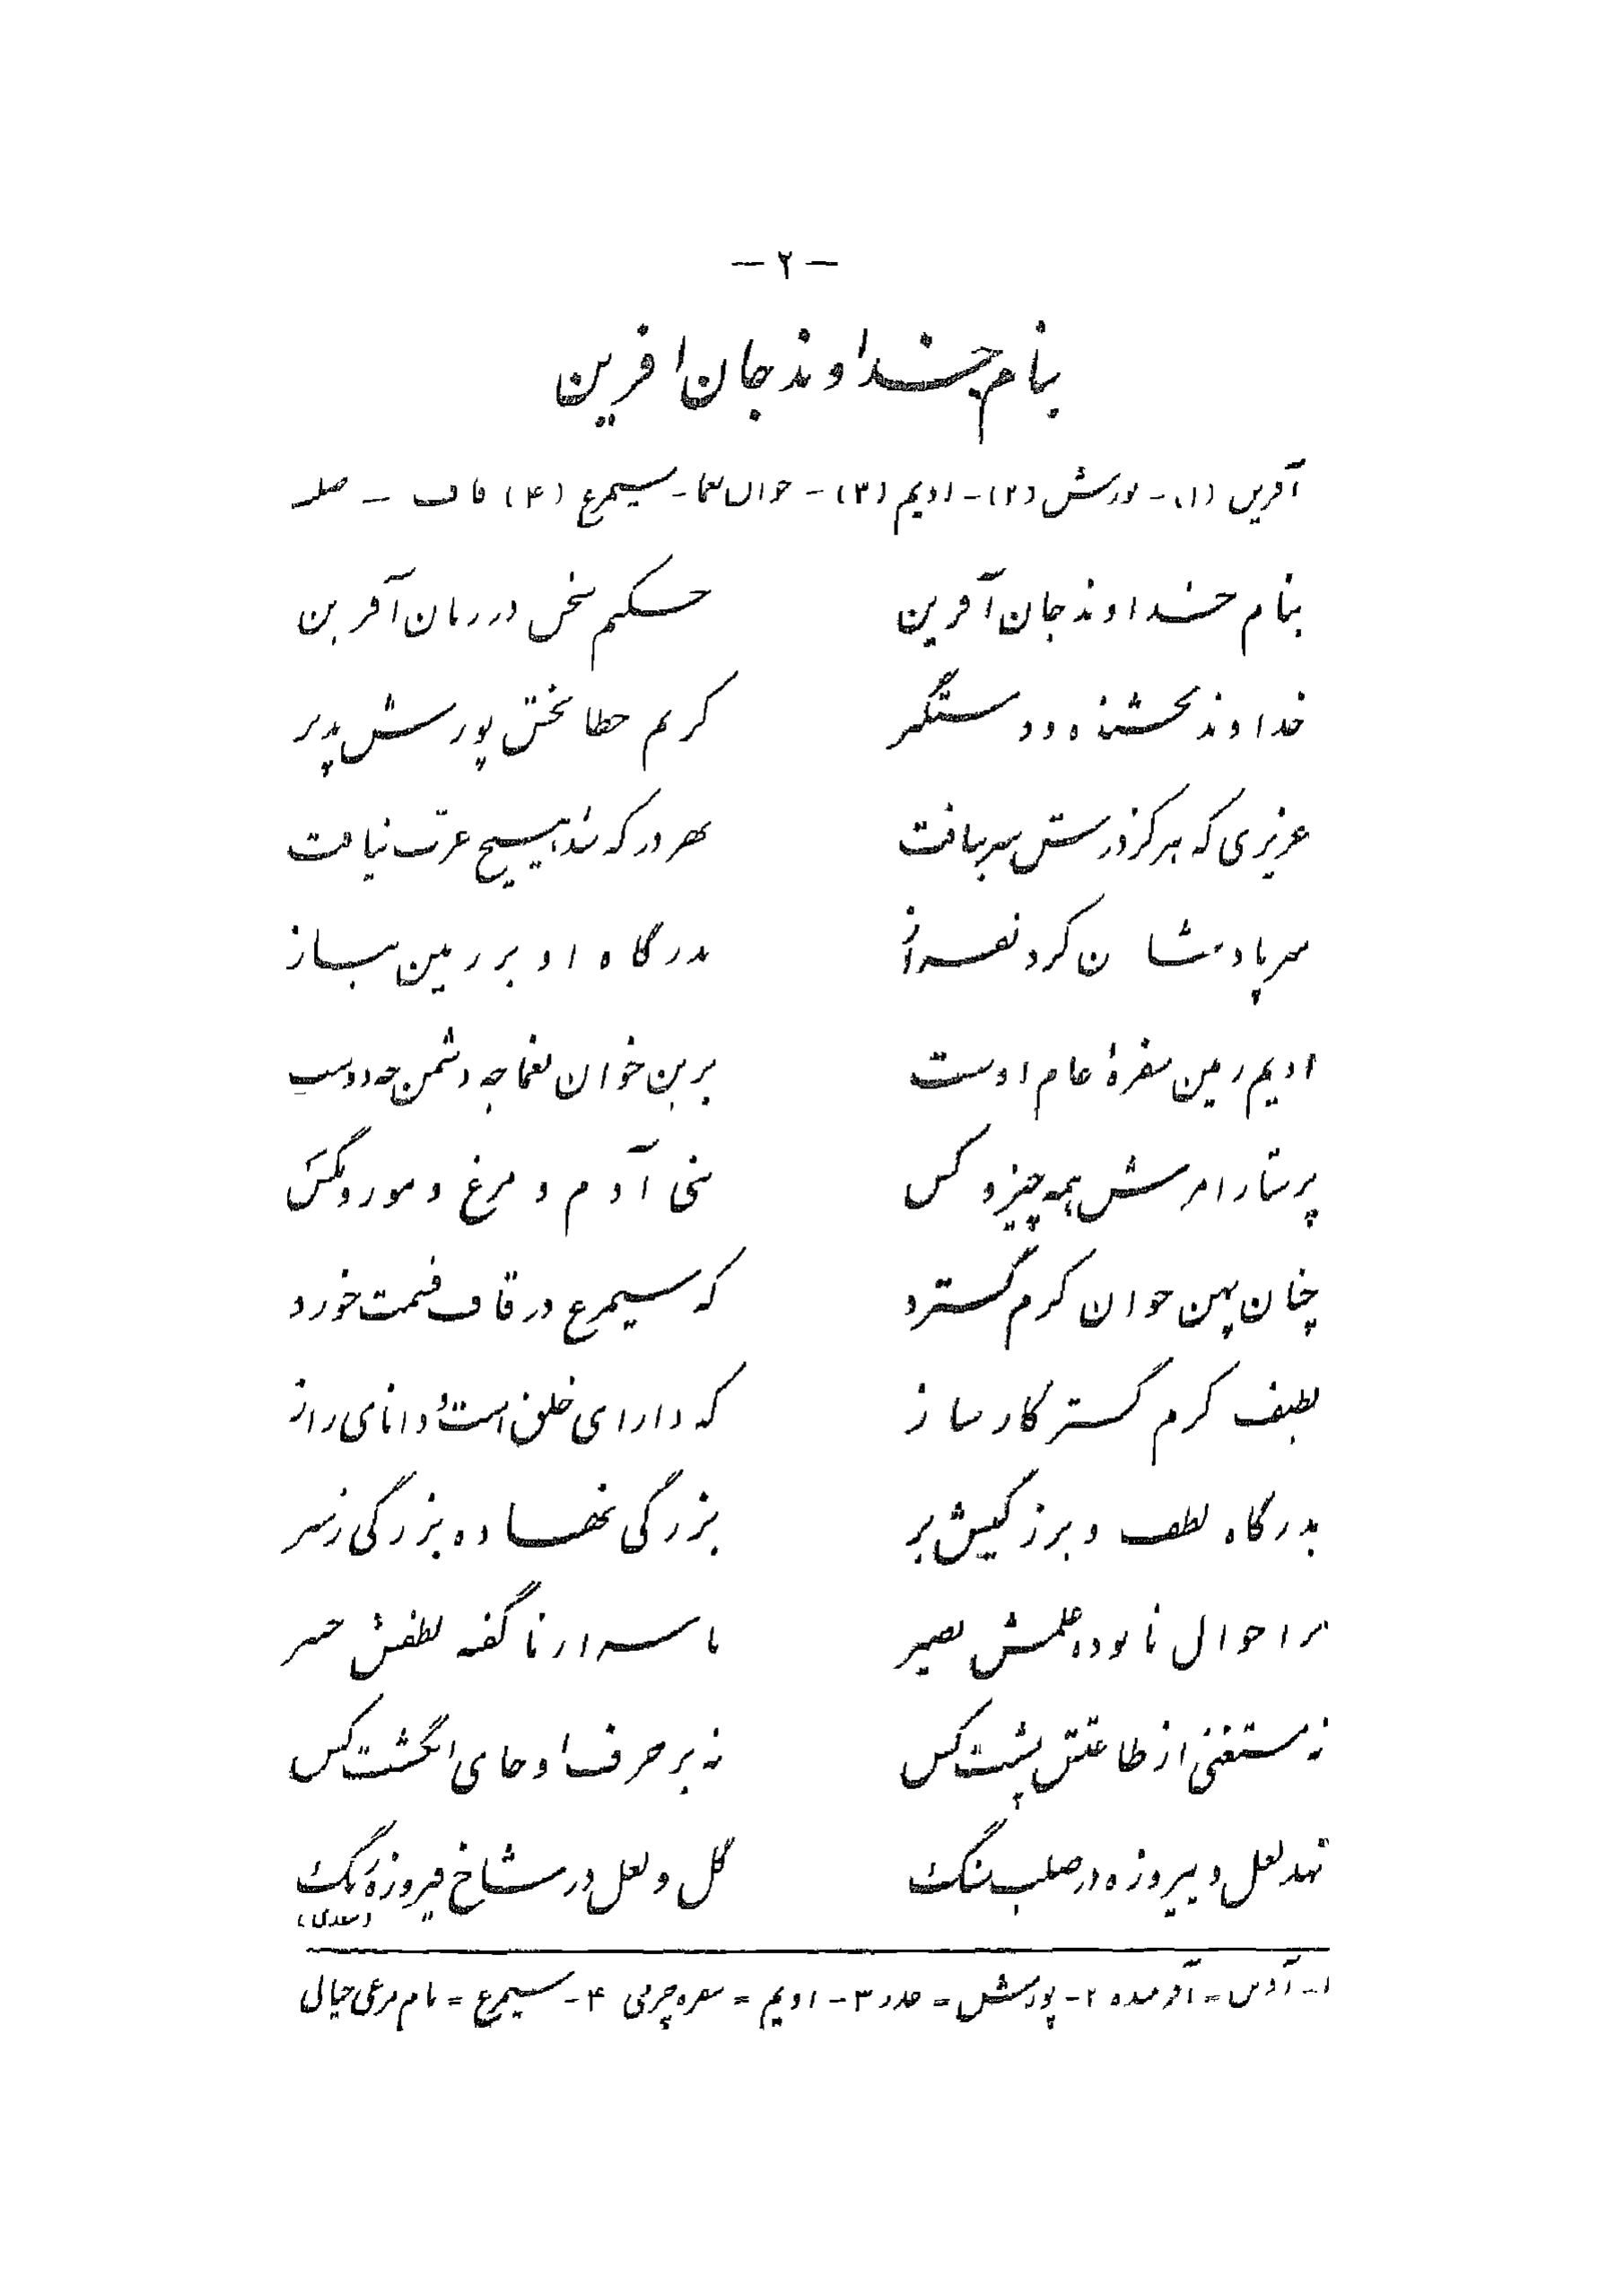 — ۲ —
بنام خداوند جان افرین
آفرین (۱) - پورش (۲) - ادیم (۳) - خوان یغما - سیمرغ (۴) قاف - صلب
بنام خداوند جان آفرین حکیم سخن در زبان آفرین
خداوند بخشنده و دستگیر کریم خطا بخش پوزش پذیر
عزیزی که هرگز درش سر بتافت بهر در که شد هیچ عزت نیافت
سر پادشاهان گردنفراز بدرگاه او بر زمین نیاز
ادیم زمین سفرهٔ عام اوست برین خوان یغما چه دشمن چه دوست
پرستار امرش همه چیز و کس بنی آدم و مرغ و مور و مگس
چنان پهن خوان کرم گسترد که سیمرغ در قاف قسمت خورد
لطیف کرم گستر کارساز که دارای خلق است و دانای راز
بدرگاه لطف و بزرگیش بر بزرگی نهاده بزرگی ز سر
بر احوال نابوده علمش بصیر باسرار ناگفته لطفش خبیر
نه مستغنی از طاعتش پشت کس نه بر حرف او جای انگشت کس
نهد لعل و پیروزه در صلب سنگ گل و لعل در شاخ فیروزه رنگ
(سعدی)
۱ - آفرین = آفریننده ۲ - پوزش = عذر ۳ - ادیم = سفره چرمی ۴ - سیمرغ = نام مرغی خیالی